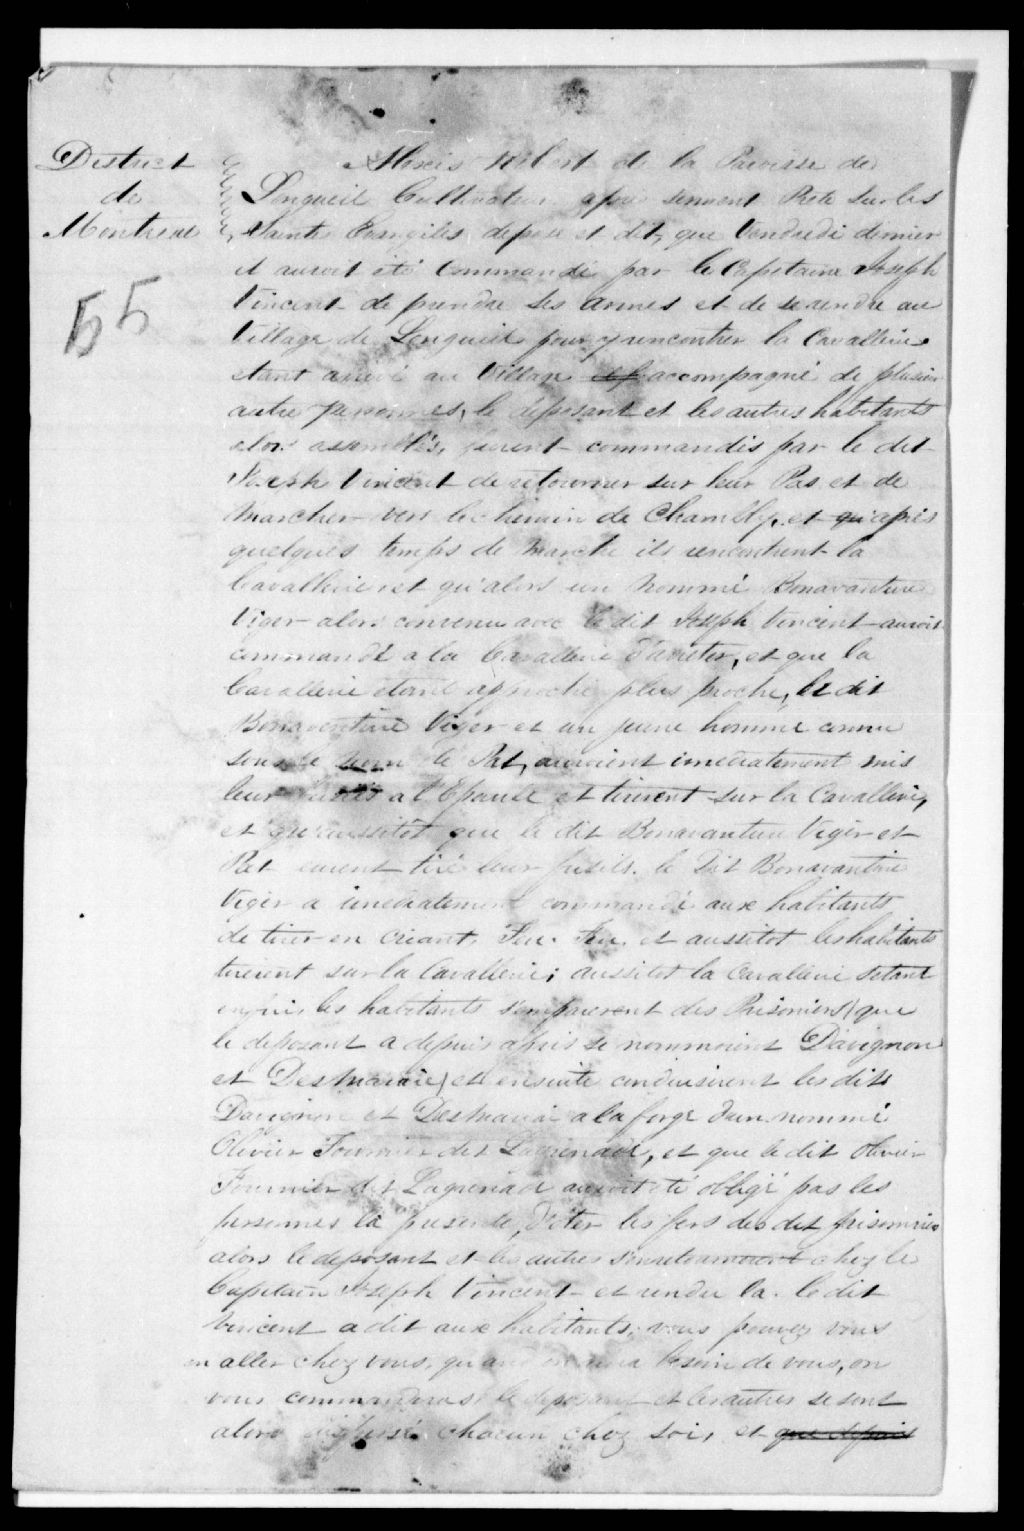 District
de
Montreal
55
Alexis de la Paroisse de
Longueil Cultivateur après serment Prete sur les
Saints Evangiles depose et dit, que Vendredi dernier
il auroit été commandé par le Capitaine Joseph
Vincent de prendre les armes et de se rendre au
Village de Longueil pour y rencontrer la Cavallerie
etant arrivé au Village accompagné de plusieurs
autre personnes, le déposant et les autres habitants
alors assemblés, furent commandés par le dit
Joseph Vincent de retourner sur leur Pas et de
Marcher vers le chemin de Chambly, et qu'après
quelques temps de Marche ils rencontrent la
Cavallerie et qu'alors un Nommé Bonavanture
Viger alors convenu avec le dit Joseph Vincent auroit
commandé a la Cavallerie d'arreter, et que la
Cavallerie étant approché plus proche, le dit
Bonaventure Viger et un jeune homme connu
sous le nom de Pat, auroient imediatement mis
leur fusils a l'Epaule et tirerent sur la Cavallerie,
et qu'aussitôt que le dit Bonavanture Viger et
Pat eurent tiré leur fusils. le Dit Bonavanture
Viger a imediatement commandé aux habitants
de tirer en criant, Feu. Feu. et aussitot les habitants
tirerent sur la Cavallerie; aussitot la Cavallerie setant
enfui, les habitants s'emparerent des Prisoniers (que
le deposant a depuis apris se nommoient Davignon
et Desmarais) et ensuite conduisirent les dits
Davignon et Desmarais a la forge d'un nommé
Olivier Fournier dit Lagrenade, et que le dit Olivier
Fournier dit Lagrenade auroit été obligé pas les
personnes là presente, d'oter les fers des dit prisonnies
alors le deposant et les autres s'en retournerent chez le
Capitain Joseph Vincent et rendu la. le dit
Vincent a dit aux habitants, vous pouvez vous
en aller chez vous, quand on aura besoin de vous, on
vous commandera, le deposant et les autres se sont
alors dispersé chacun chez soi, et que depuis